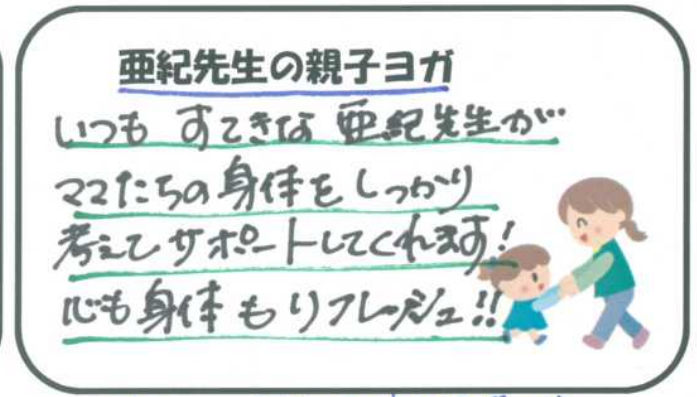 亜紀先生の親子ヨガ
いつも すてきな 亜紀先生が
ママたちの身体をしっかり
考えてサポートしてくれます!
心も身体もリフレッシュ!!